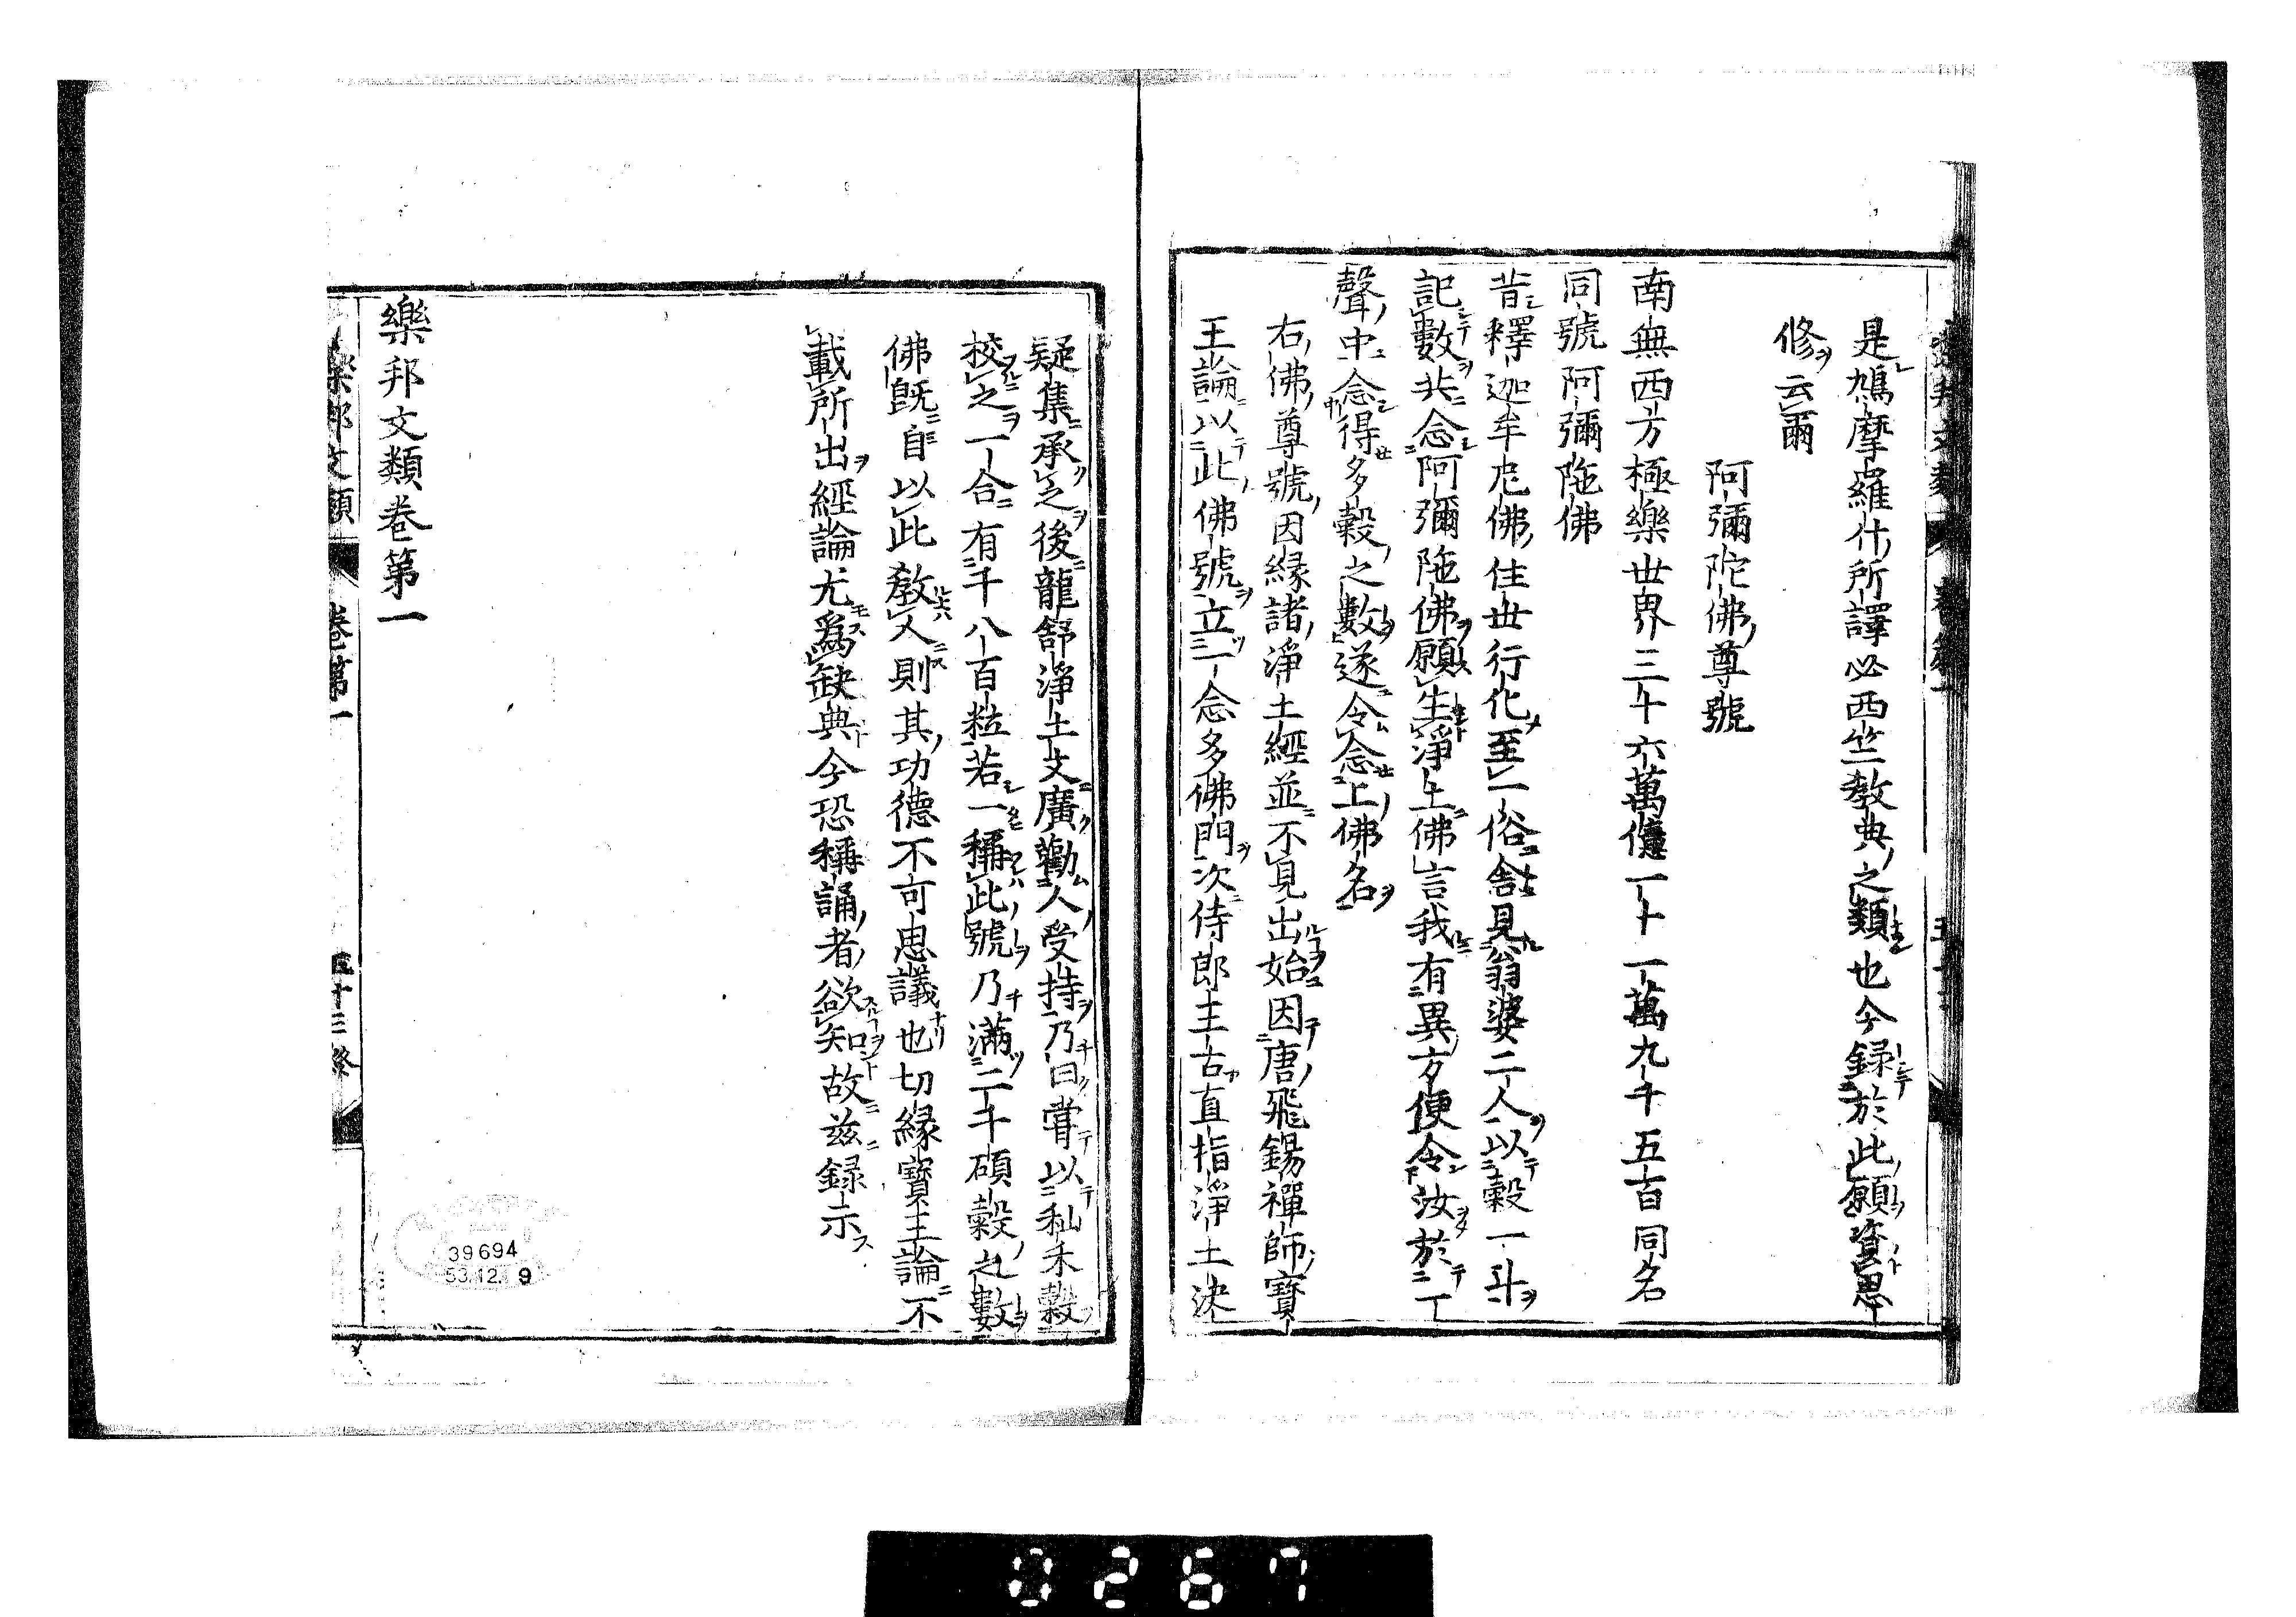 是鳩摩羅什所譯必西竺教典之類也今録於此願資思
修云爾
阿彌陀佛尊號
南無西方極樂世界三十六萬億一十一萬九千五百同名
同號阿彌陁佛
昔釋迦牟尼佛住世行化至一俗舎見翁婆二人以穀一斗
記數共念阿彌陁佛願生淨土佛言我有異方便令汝於一
聲中念得多穀之數遂令念上佛名
右佛尊號因縁諸淨土經並不見出始因唐飛錫禪師寶
王論以此佛號立一念多佛門次侍郎王古直指淨土決
疑集承之後龍舒淨土文廣勸人受持乃曰甞以秈禾穀
校之一合有千八百粒若一稱此號乃滿二千碩穀之數
佛既自以此教人則其功德不可思議也切縁寶王論不
載所出經論尤爲缺典今恐稱誦者欲知故茲録示
樂邦文類卷第一
樂邦文類 卷第一 五十三終
39694
53.12.9
0267